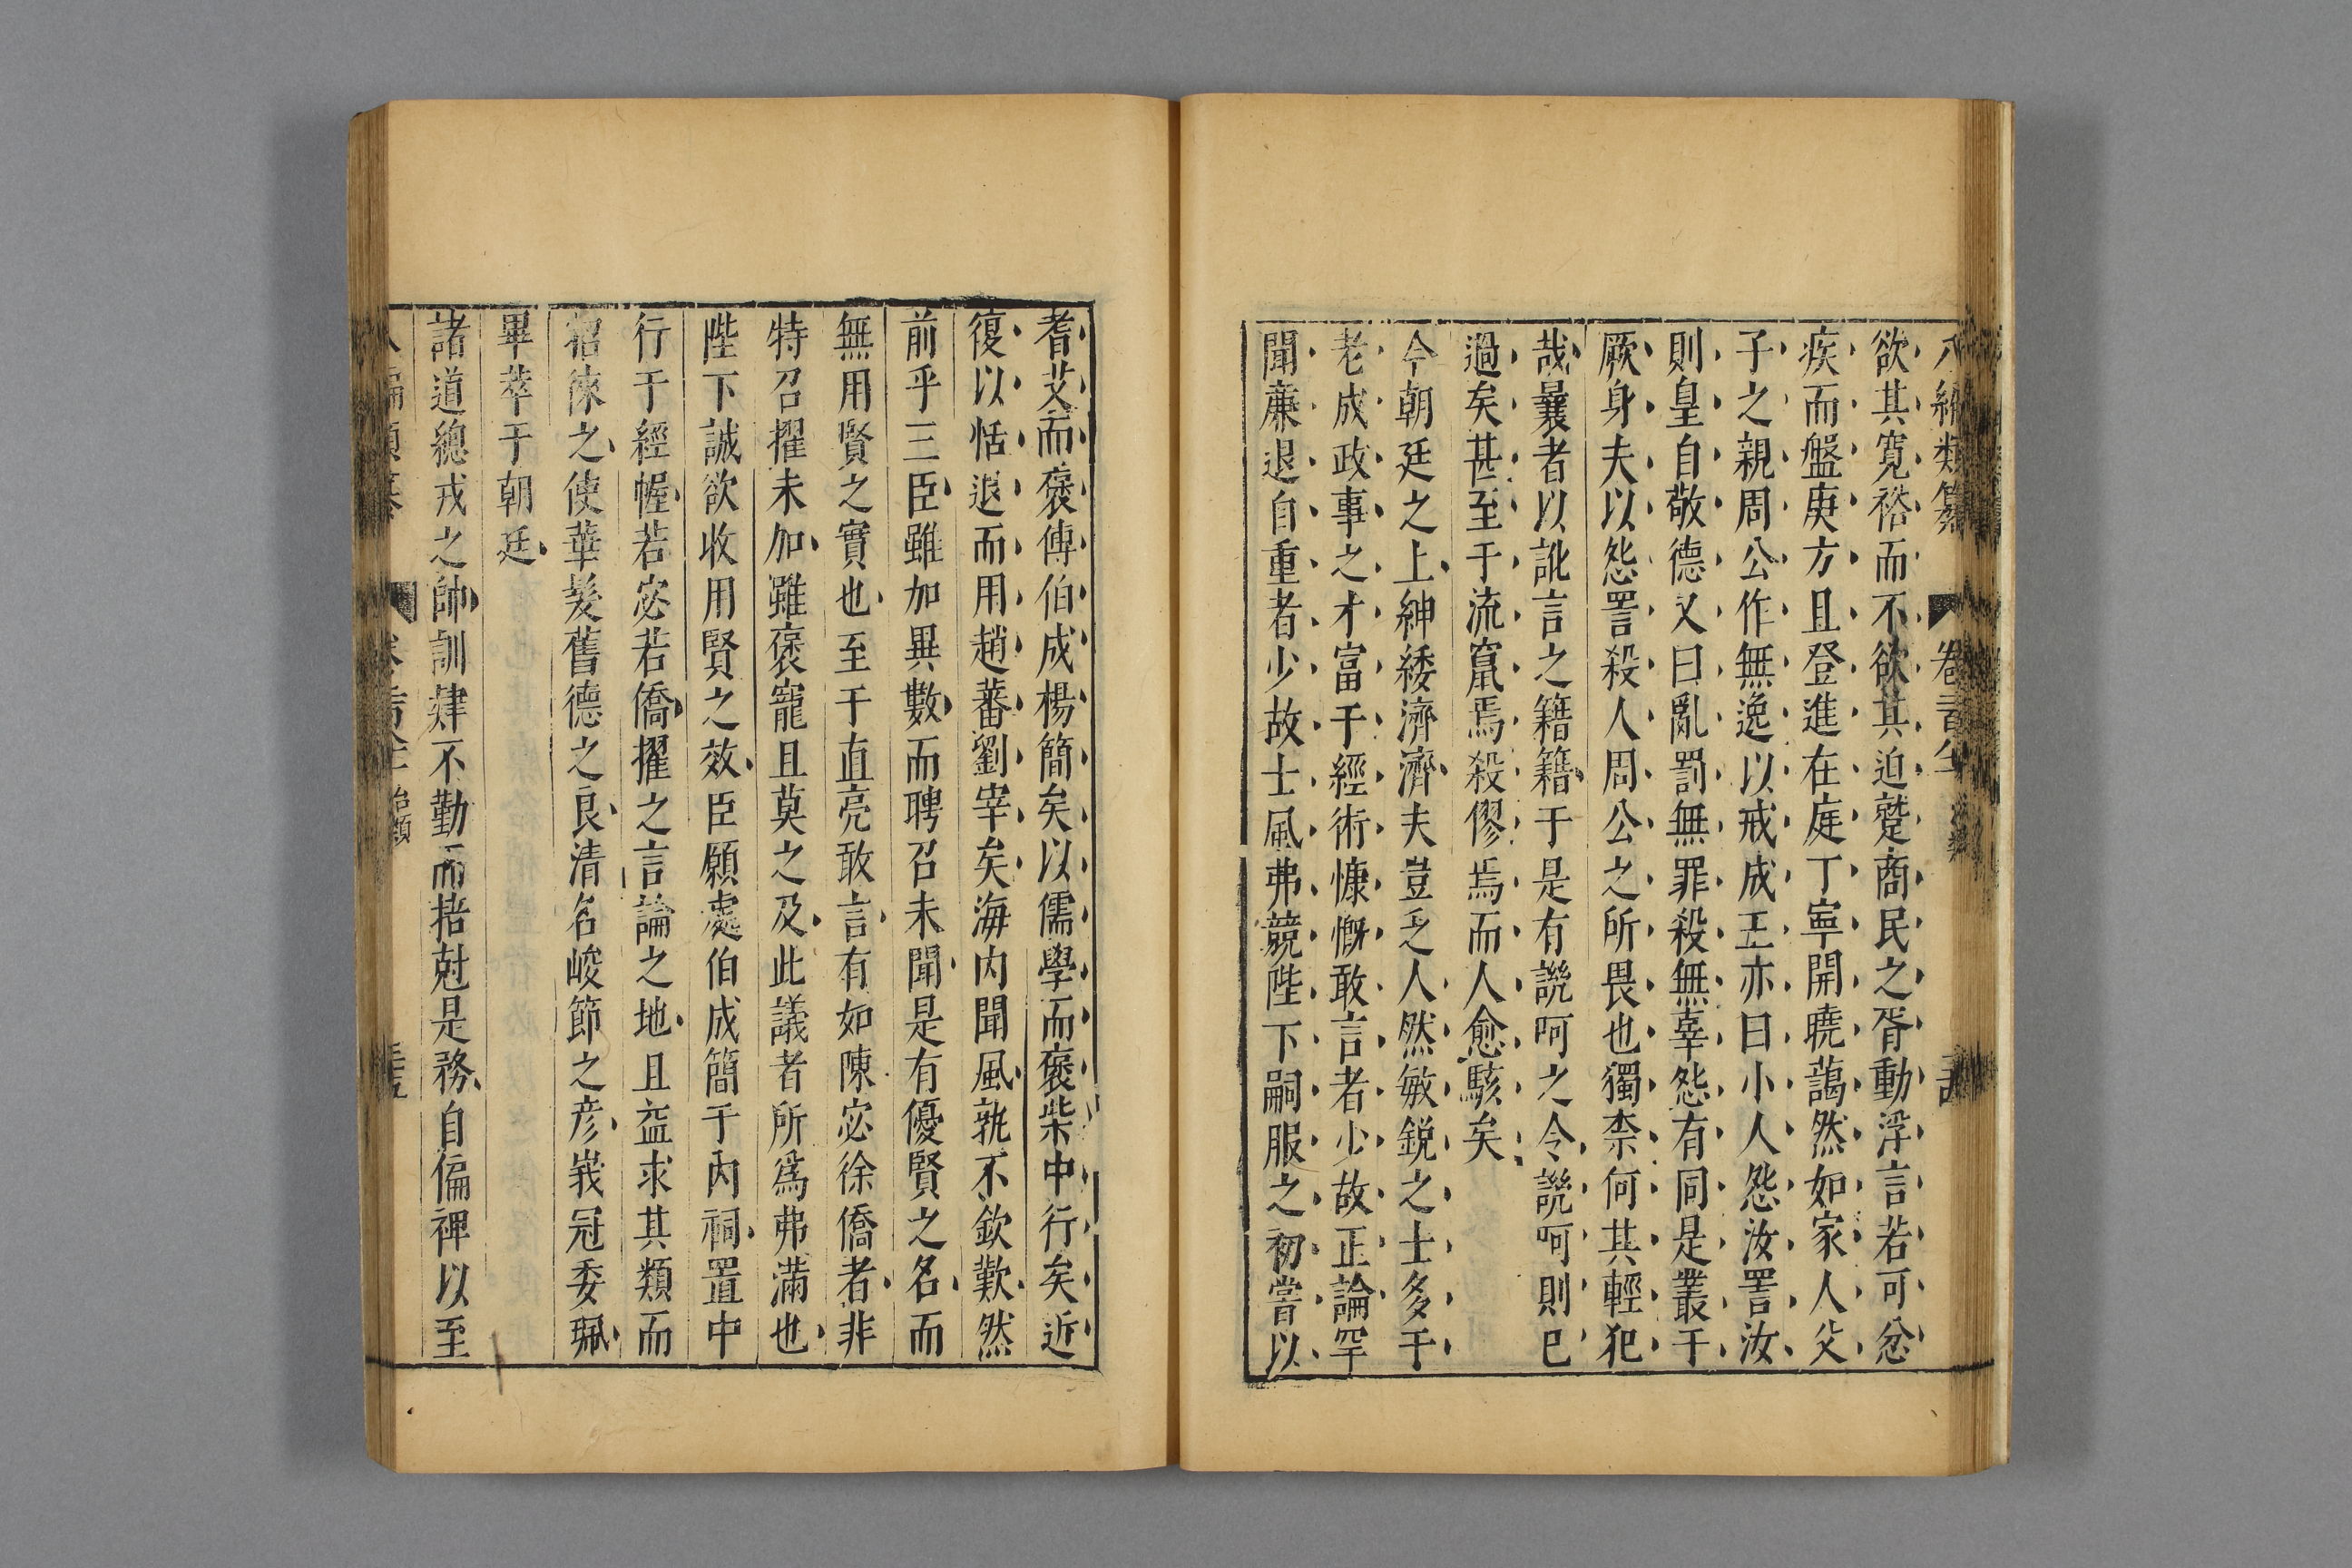 八編類纂 卷 治類
欲其寬裕而不欲其迫蹙商民之胥動浮言若可忿
疾而盤庚方且登進在庭丁寧開曉藹然如家人父
子之親周公作無逸以戒成王亦曰小人怨汝詈汝
則皇自敬德又曰亂罰無罪殺無辜怨有同是叢于
厥身夫以怨詈殺人周公之所畏也獨柰何其輕犯
哉曩者以訛言之籍籍于是有譏呵之令譏呵則已
過矣甚至于流竄焉殺僇焉而人愈駭矣
今朝廷之上紳緌濟濟夫豈乏人然敏銳之士多于
老成政事之才富于經術慷慨敢言者少故正論罕
聞廉退自重者少故士風弗競陛下嗣服之初嘗以
耆艾而褒傅伯成楊簡矣以儒學而褒柴中行矣近
復以恬退而用趙蕃劉宰矣海内聞風孰不欽歎然
前乎三臣雖加異數而聘召未聞是有優賢之名而
無用賢之實也至于直亮敢言有如陳宓徐僑者非
特召擢未加雖褒寵且莫之及此議者所爲弗滿也
陛下誠欲收用賢之效臣願處伯成簡于内祠置中
行于經幄若宓若僑擢之言論之地且益求其類而
招徠之使華髮舊德之良清名峻節之彥峩冠委珮
畢萃于朝廷
諸道總戎之帥訓肄不勤而掊尅是務自偏裨以至
八編類纂 卷 治類